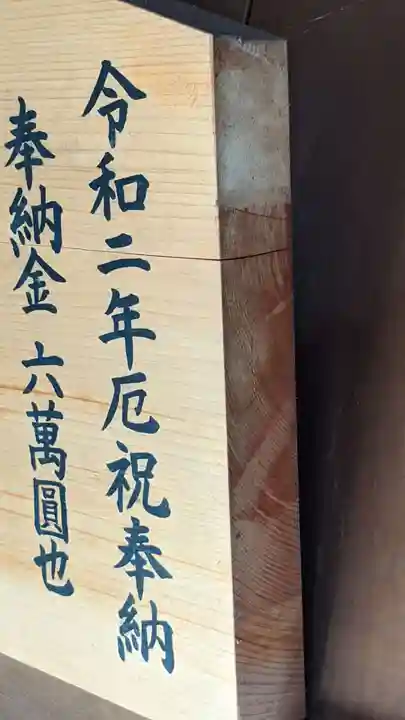 令和二年厄祝奉納
奉納金六萬圓也